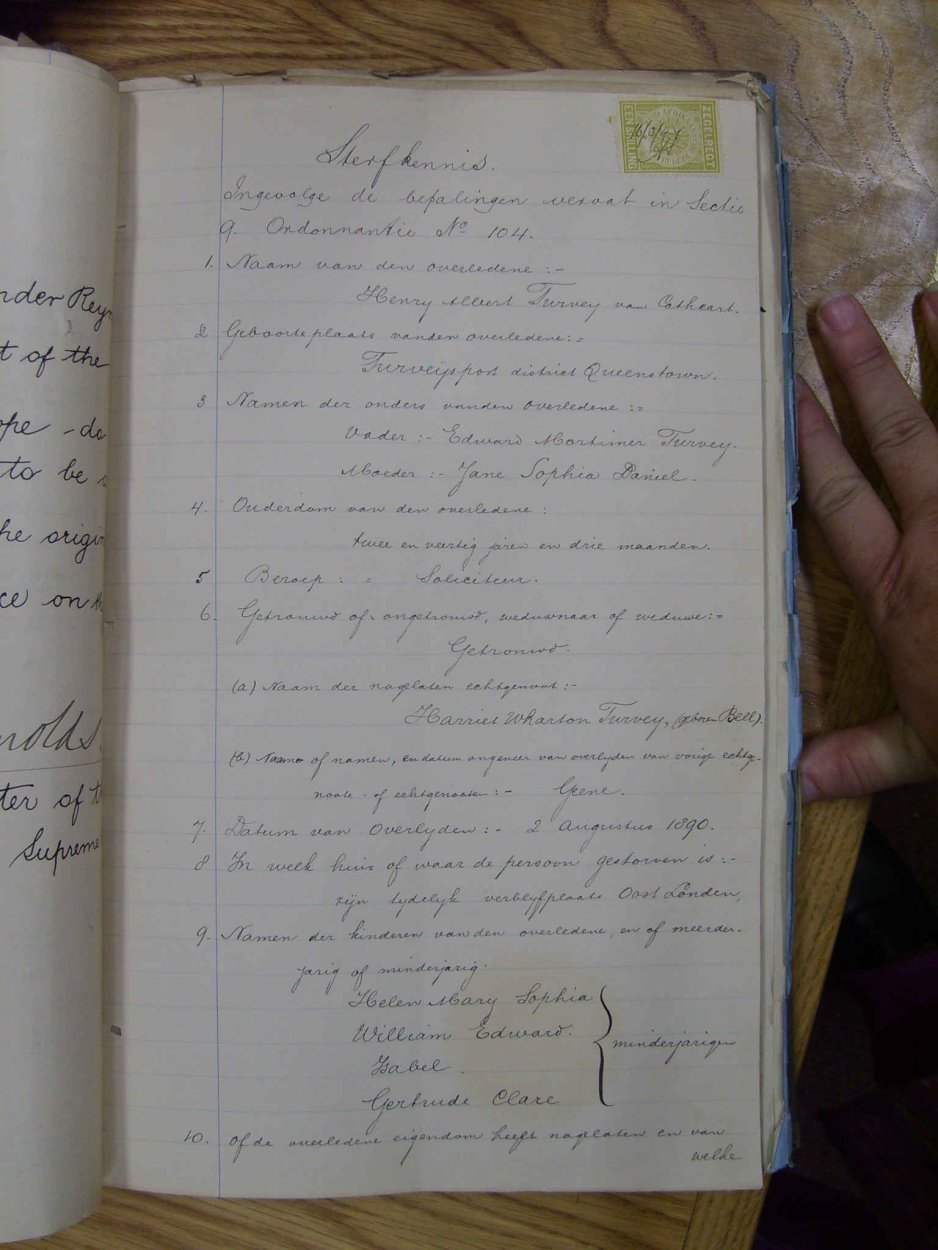 nder Rey
t of the
ope - do
to be
he origin
ce on th
nolds.
ter of t
Supreme
ZEGELRECHT
EEN SHILLING
Sterfkennis.
Ingevolge de bepalingen vervat in Sectie
9. Ordonnantie No 104.
1. Naam van den overledene :-
Henry Albert Turvey van Cathcart.
2 Geboorteplaats vanden overledene: =
Turveyspost district Queenstown.
3 Namen der ouders vanden overledene : =
Vader :- Edward Mortimer Turvey.
Moeder :- Jane Sophia Daniel.
4. Ouderdom van den overledene :
twee en veertig jaren en drie maanden.
5 Beroep : = Soliciteur.
6. Getrouwd of ongetrouwd, weduwnaar of weduwe: =
Getrouwd.
(a) Naam der nagelaten echtgenoot :-
Harriet Wharton Turvey, (geboren Bell).
(b) Naam of namen, en datum ongeveer van overlyden van vorige echtge-
noote of echtgenooten :- Geene.
7. Datum van Overlyden :- 2 Augustus 1890.
8 In welk huis of waar de persoon gestorven is :-
zijn tydelyk verblyfplaats Oost Londen,
9. Namen der kinderen van den overledene, en of meerder-
jarig of minderjarig.
Helen Mary Sophia
William Edward.
Isabel.
Gertrude Clare
minderjarigen
10. Of de overledene eigendom heeft nagelaten en van
welke